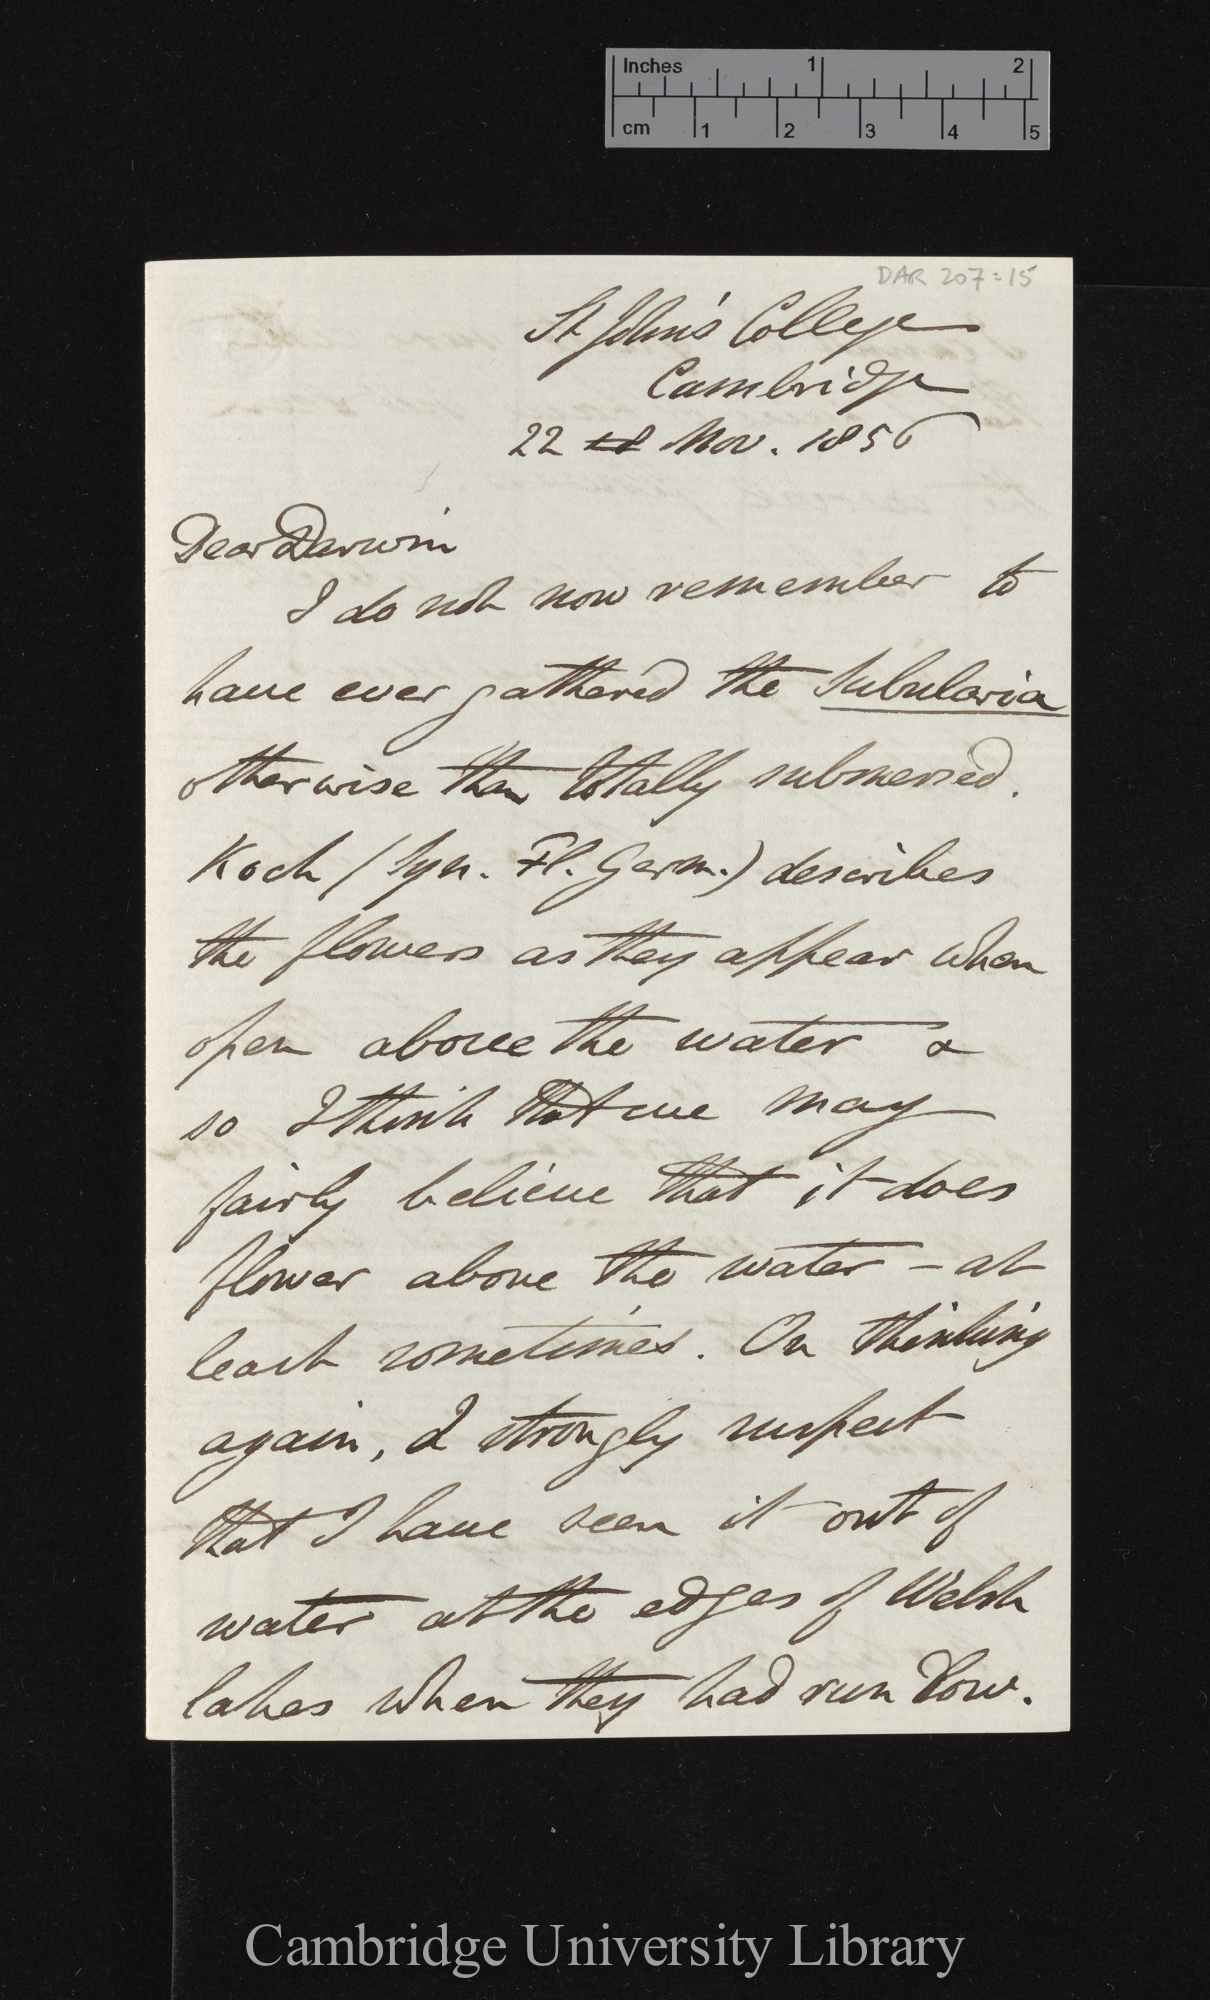 Inches 1 2
cm 1 2 3 4 5
DAR 207:15
St John's College
Cambridge
22 18 Nov. 1856
Dear Darwin
I do not now remember to
have ever gathered the Subularia
otherwise than totally submersed.
Koch (Syn. Fl. Germ.) describes
the flowers as they appear when
open above the water &
so I think that we may
fairly believe that it does
flower above the water – at
least sometimes. On thinking
again, I strongly suspect
that I have seen it out of
water at the edges of Welsh
lakes when they had run low.
Cambridge University Library